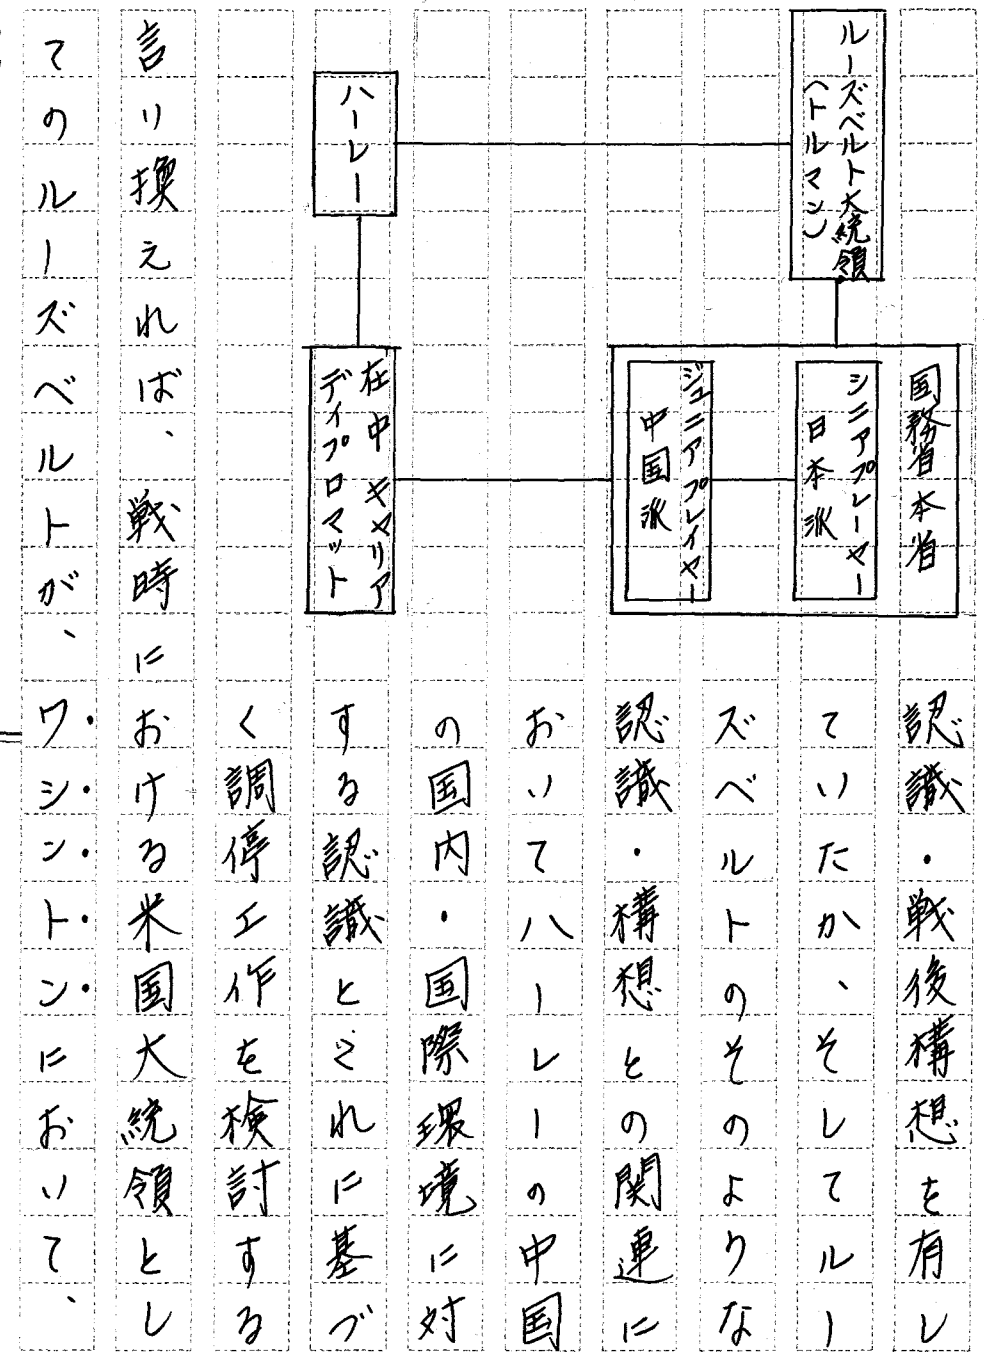 ルーズベルト大統領
(トルーマン)
ハーレー
国務省本省
シニアプレーヤー
日本派
ジュニアプレイヤー
中国派
在中キャリア
ディプロマット
認識・戦後構想を有し
ていたか、そしてルー
ズベルトのそのような
認識・構想との関連に
おいてハーレーの中国
の国内・国際環境に対
する認識とそれに基づ
く調停工作を検討する
言い換えれば、戦時における米国大統領とし
てのルーズベルトが、ワシントンにおいて、